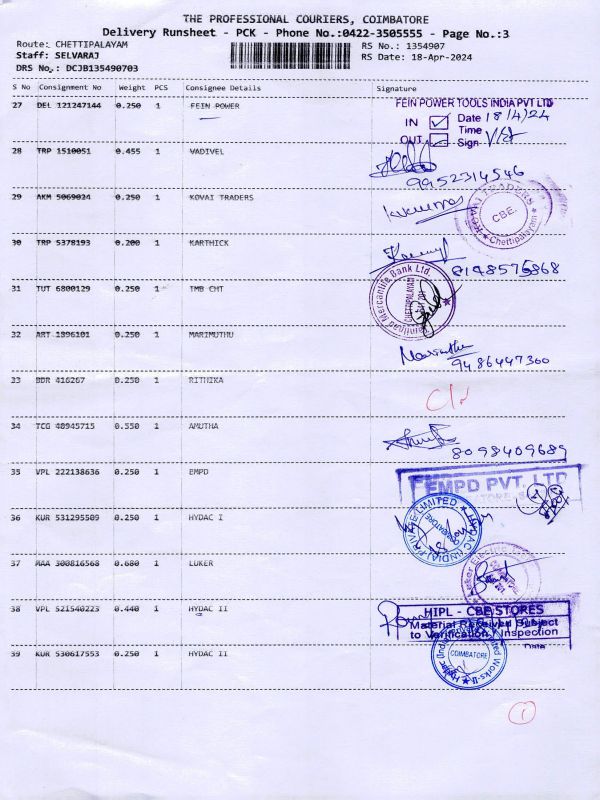 THE PROFESSIONAL COURIERS, COIMBATORE
Delivery Runsheet - PCK - Phone No.:0422-3505555 - Page No.:3
Route: CHETTIPALAYAM
RS No.: 1354907
Staff: SELVARAJ
RS Date: 18-Apr-2024
DRS No.: DCJB135490703
S No Consignment No Weight PCS Consignee Details Signature
27 DEL 121247144 0.250 1 FEIN POWER
FEIN POWER TOOLS INDIA PVT LTD
IN Date 18/4/24
Time
OUT Sign
28 TRP 1510051 0.455 1 VADIVEL
9952314546
29 AKM 5069024 0.250 1 KOVAI TRADERS
TRADERS
CBE.
Chettipalayam
30 TRP 5378193 0.200 1 KARTHICK
8148575868
31 TUT 6800129 0.250 1 TMB CHT
Tamilnad Mercantile Bank Ltd.
CHETTIPALAYAM
32 ART 1896101 0.250 1 MARIMUTHU
Marimuthu
9486447300
33 BDR 416267 0.250 1 RITHIKA
34 TCG 48945715 0.550 1 AMUTHA
8098409689
35 VPL 222138636 0.250 1 EMPD
EMPD PVT. LTD
36 KUR 531295509 0.250 1 HYDAC I
HYDAC (INDIA) PRIVATE LIMITED
37 MAA 300816568 0.680 1 LUKER
Luker Electric
38 VPL 621540223 0.440 1 HYDAC II
HIPL - CBE STORES
Material Received Subject
to Verification Inspection
Date
39 KUR 530617553 0.250 1 HYDAC II
COIMBATORE
1